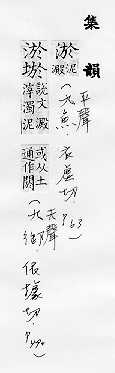 集韻
淤 泥澱
（九魚．衣虛切．p.63）平聲
淤𡋬 說文澱滓濁泥 或从土通作閼
（九御．依據切．p.490）去聲